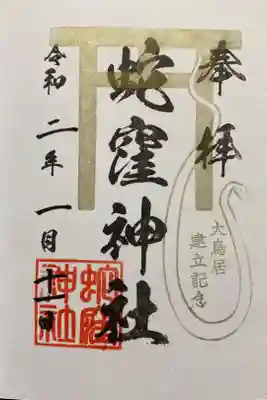 奉拝
大鳥居
建立記念
蛇窪神社
令和二年一月十一日
蛇窪
神社